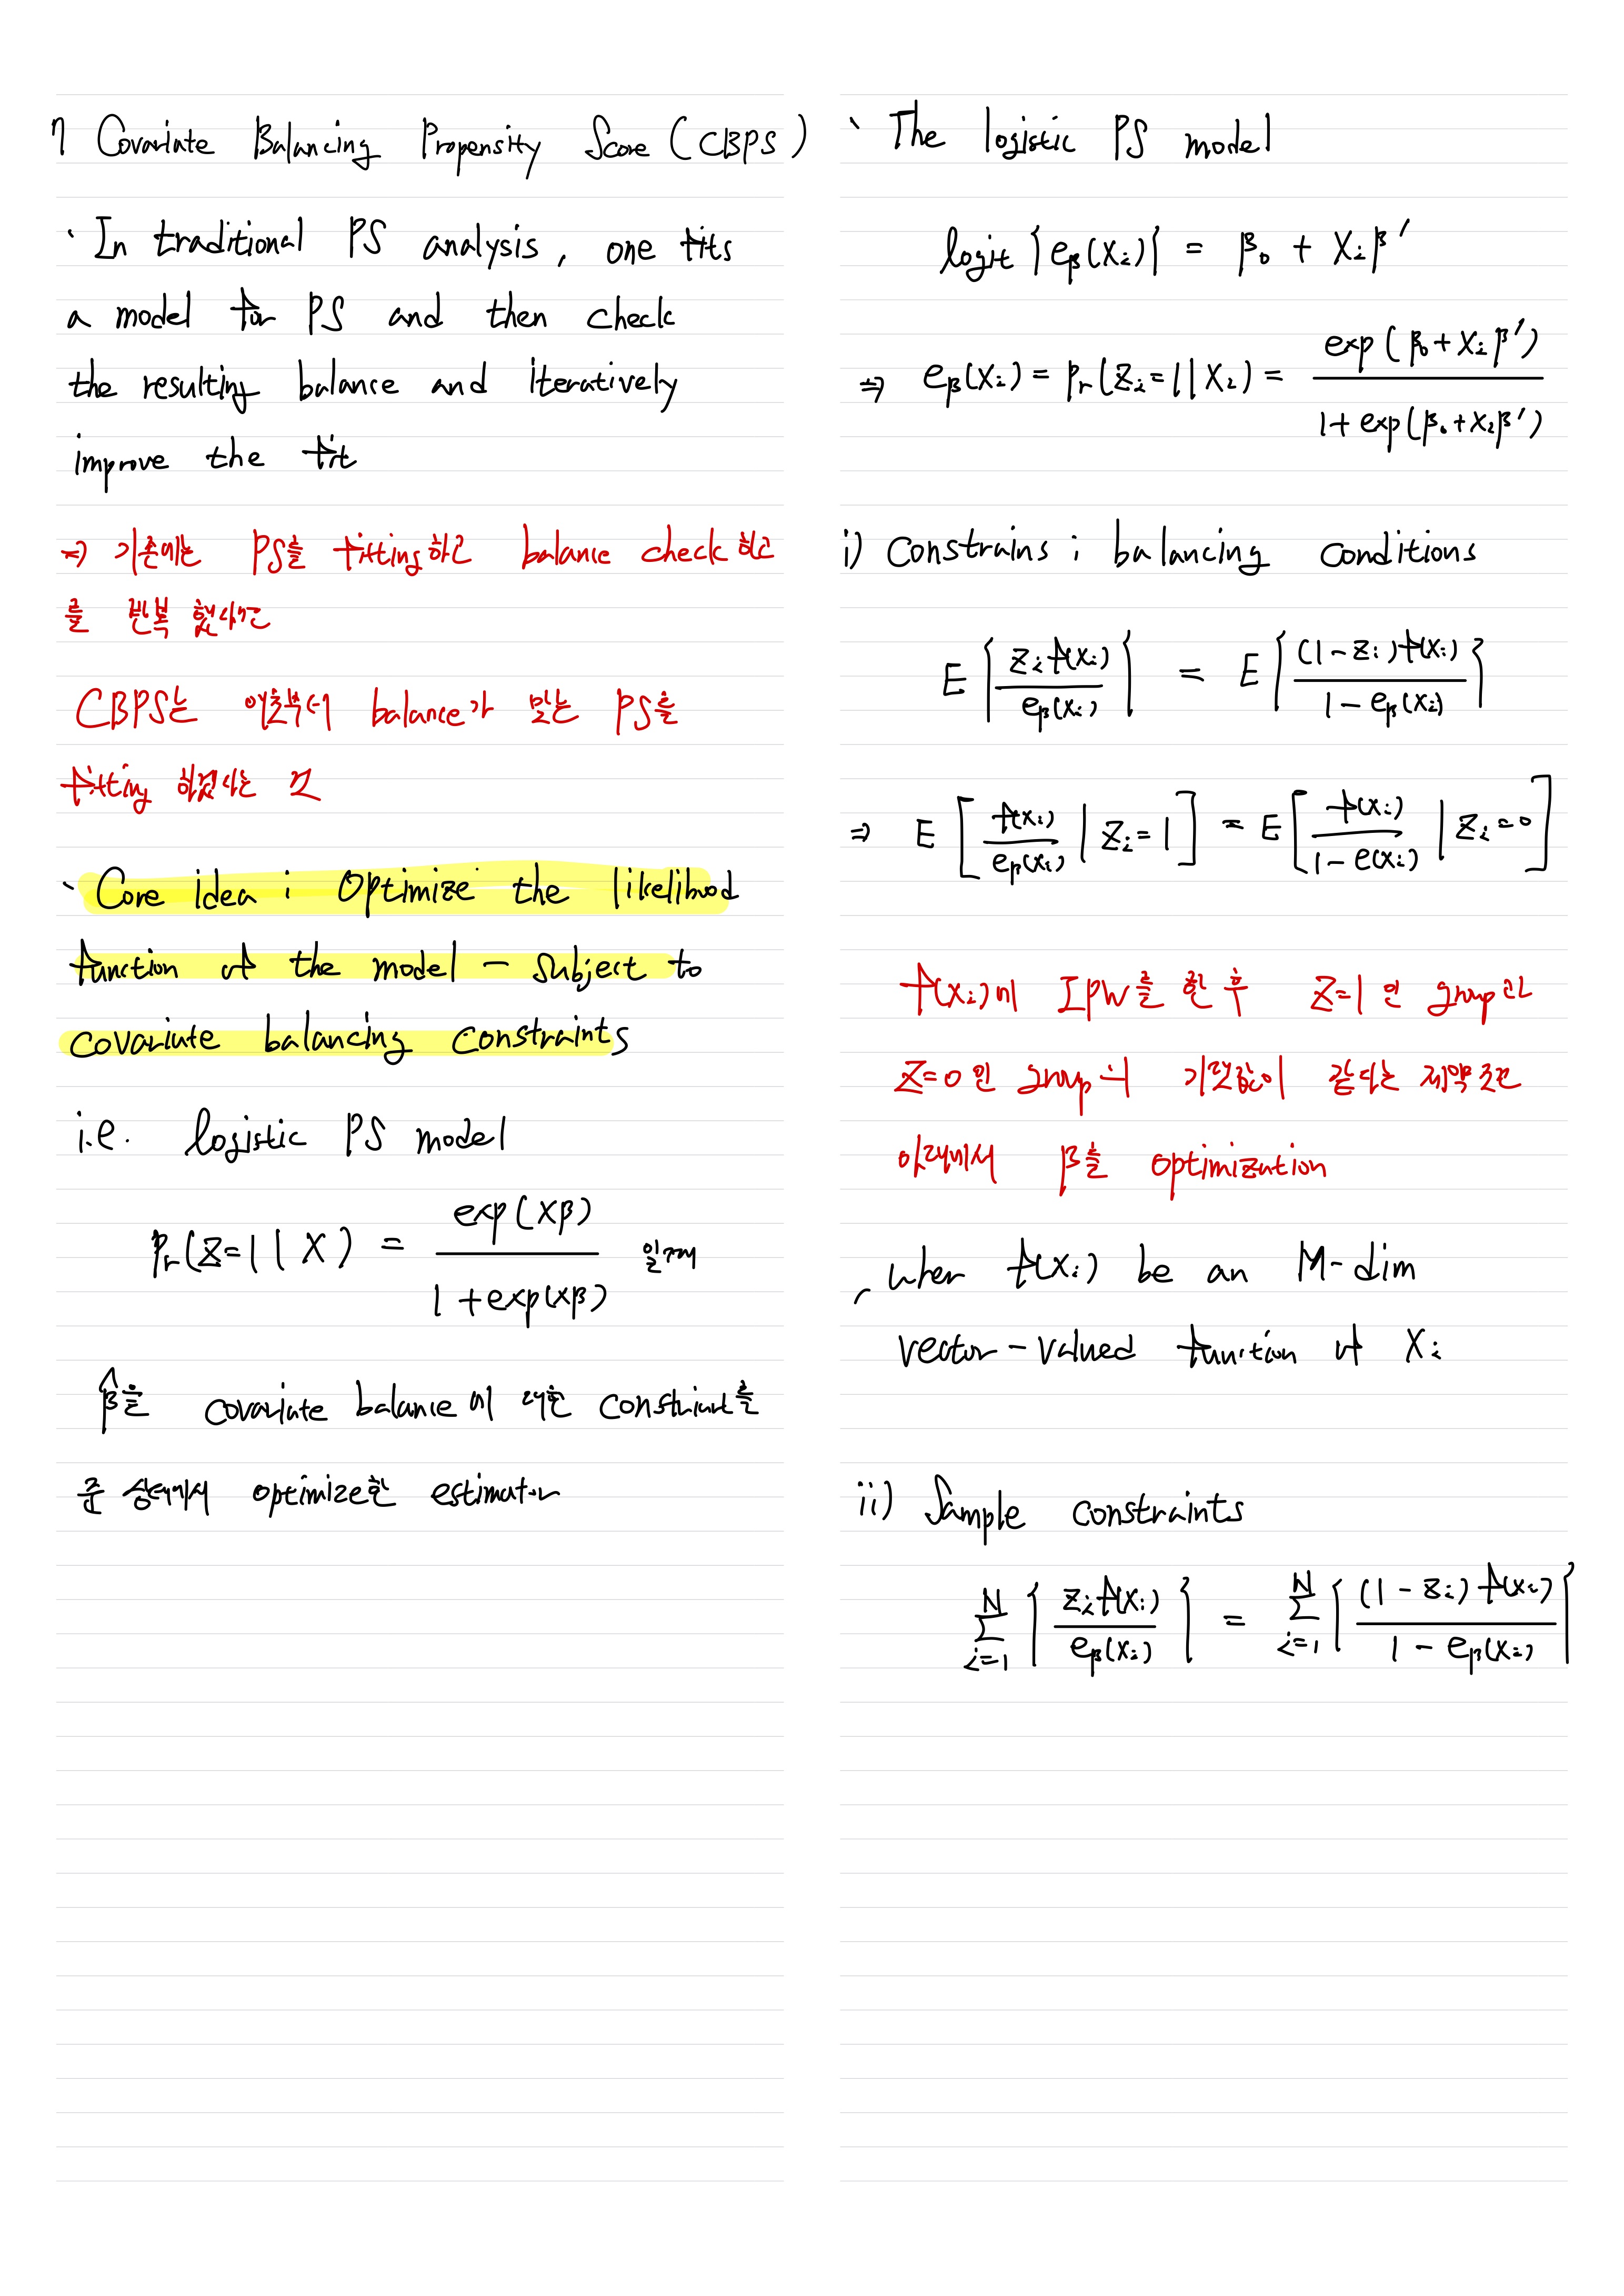 7 Covariate Balancing Propensity Score (CBPS)
· In traditional PS analysis, one fits
a model for PS and then check
the resulting balance and iteratively
improve the fit
⇒ 기존에는 PS를 fitting하고 balance check 하고
를 반복 했다면
CBPS는 애초부터 balance가 맞는 PS를
fitting 하겠다는 것
· Core idea : Optimize the likelihood
function of the model - subject to
covariate balancing constraints
i.e. logistic PS model
Pr(Z=1 | X) = exp(Xβ) / 1 + exp(Xβ) 일 때
β̂을 covariate balance에 대한 constraint를
준 상태에서 optimize한 estimator
· The logistic PS model
logit {e_β(X_i)} = β_0 + X_i β'
⇒ e_β(X_i) = Pr(Z_i = 1 | X_i) = exp(β_0 + X_i β') / 1 + exp(β_0 + X_i β')
i) Constrains ; balancing conditions
E { Z_i f(X_i) / e_β(X_i) } = E { (1 - Z_i) f(X_i) / 1 - e_β(X_i) }
⇒ E [ f(X_i) / e_β(X_i) | Z_i = 1 ] = E [ f(X_i) / 1 - e(X_i) | Z_i = 0 ]
f(X_i)에 IPW를 한 후 Z=1 인 group과
Z=0 인 group의 기댓값이 같다는 제약조건
아래에서 β를 optimization
, when f(X_i) be an M-dim
vector-valued function of X_i
ii) Sample constraints
∑_{i=1}^{N} { Z_i f(X_i) / e_β(X_i) } = ∑_{i=1}^{N} { (1 - Z_i) f(X_i) / 1 - e_β(X_i) }